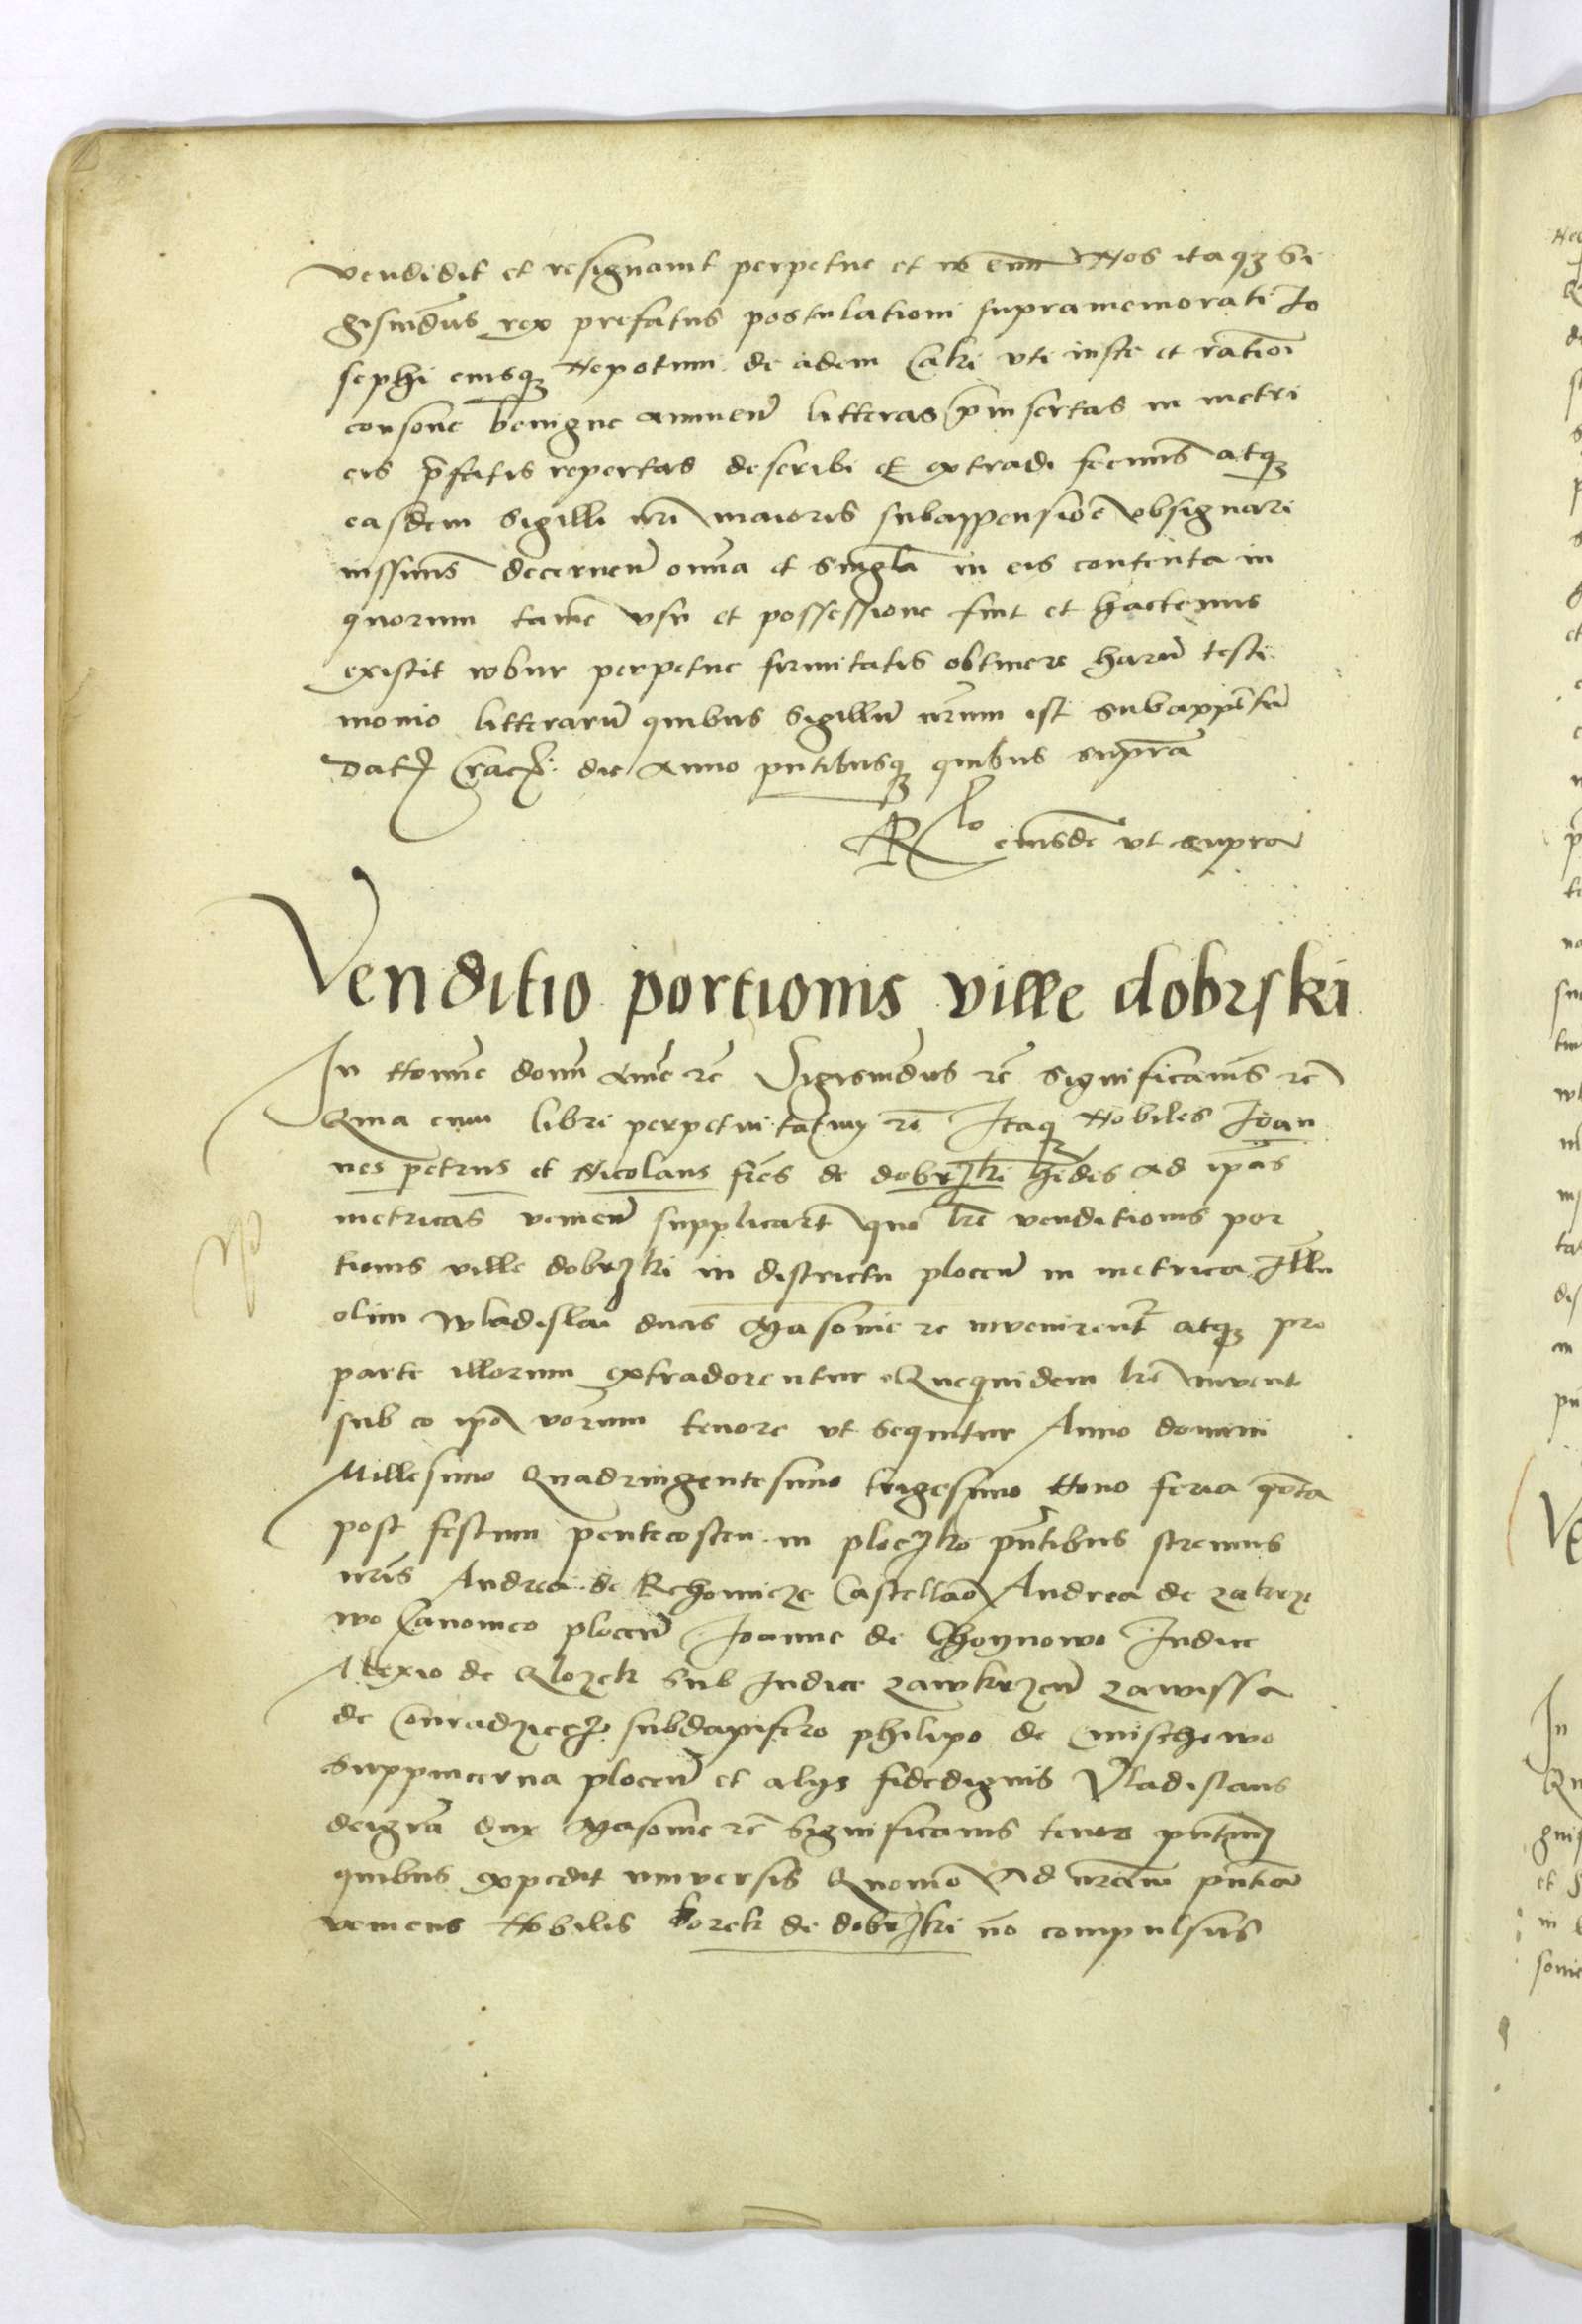 vendidit et resignavit perpetue et in evum Nos itaq3 Si
gismūdus rex prefatus postulationi supramemorati Jo
sephi eiusq3 Nepotum de adem Caki uti iuste et rationi
consone benigne annuen̄ litteras p̄insertas in metri
cis p̄fatis repertas describi et extradi fecimus atq3
easdem sigilli nr̄i maioris subappensiōe obsignari
iussimus decernen̄ omnia et singl̄a in eis contenta in
quorum tamē usu et possessione fuit et hactenus
existit robur perpetue firmitatis obtinere harū testi
monio litterarū quibus Sigillū nr̄um est subappēsū
Dat Crac̄ die Anno p̄ntibusq3 quibus supra
Rlo eiusdē ut supra
Venditio portionis ville dobrski
In Nomīe domī amē rc̄ Sigismūdus rc̄ significamus rc̄
Quia cum libri perpetuitatum rc̄ Itaq3 Nobiles Joan
nes petrus et Nicolaus fr̄es de dobrzki hēdes ad ip̄as
metricas venien̄ supplicarūt quo lr̄e venditionis por
tionis ville dobrzki in districtu plocen̄ in metrica Illu
olim Wladislai ducis Masovie rc invenirent̄ atq3 pro
parte illorum extraderentur Quequidem lr̄e invent
sub eo ip̄o verum tenore ut sequitur Anno domini
Millesimo Quadringentesimo trigesimo Nono feria qnta
post festum pentecosten in ploczko p̄ntibus strenuis
viris Andrea de Rchomicze Castellāo Andrea de zakrze
wo Canonico plocen̄ Joanne de Choynowo Judice
Alexio de Klozek Sub Judice zawkrzen̄ zawissa
de Conradziecz subdapifero philipo de Cmischewo
Suppincerna plocen̄ et alys fidedignis Vladislaus
deigra dux Masovie rc̄ Significamus tenore p̄ntium
quibus expedit universis Quomō Ad nr̄am p̄ntiā
veniens Nobilis borek de dobrzki nō compulsus